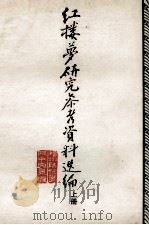 红楼梦研究参考资料选编
上册